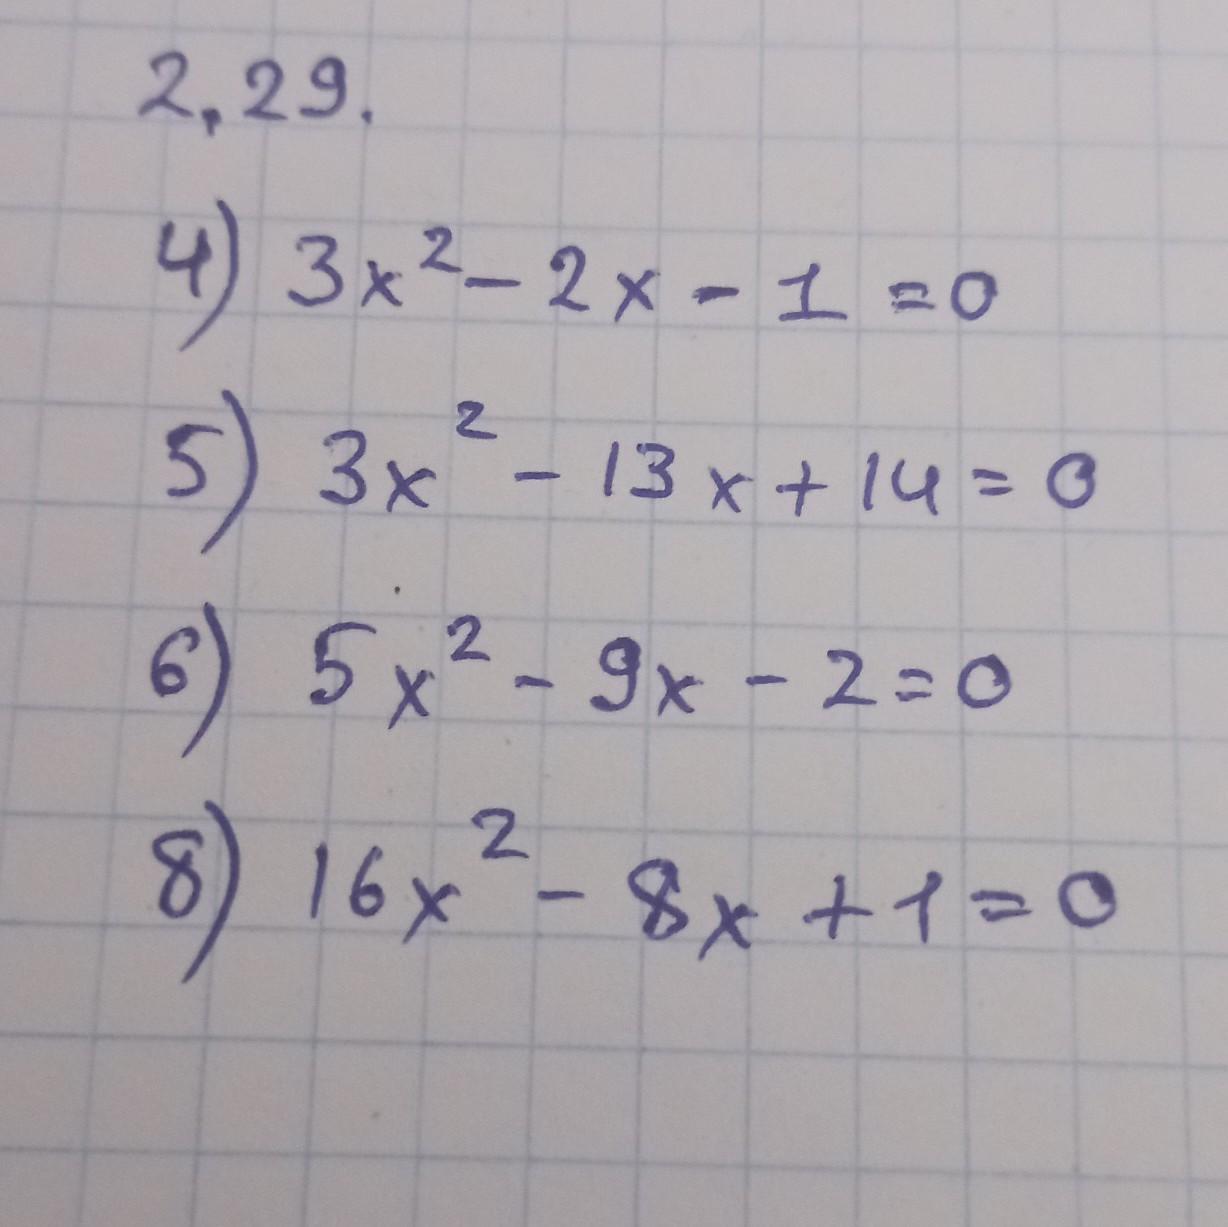 2,29.
4) 3x² - 2x - 1 = 0
5) 3x² - 13x + 14 = 0
6) 5x² - 9x - 2 = 0
8) 16x² - 8x + 1 = 0